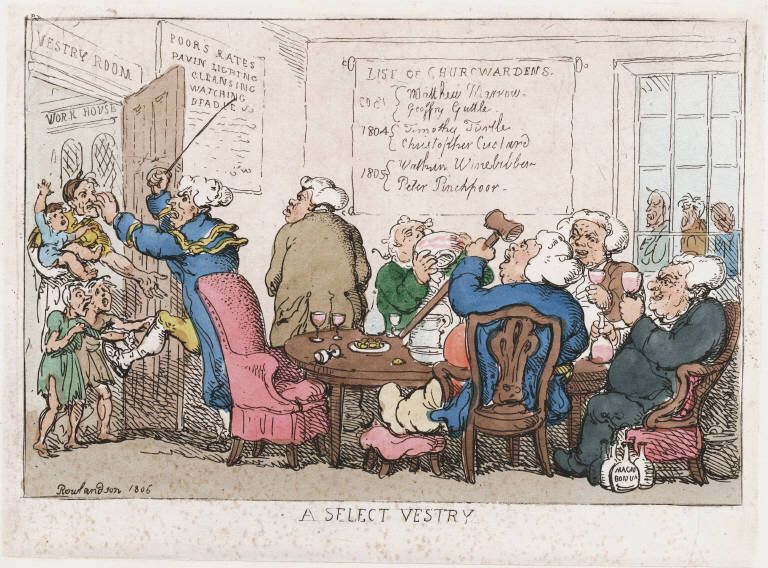 VESTRY ROOM
WORK HOUSE
POORS RATES
PAVIN LIGHTNG
CLEANSING
WATCHING
BEADLE
LIST OF CHURCWARDENS.
Matthew Marrow.
Geoffry Guttle
1804 Timothy Turtle
Christopher Custard
1805 Wathan Winebibber
Peter Pinchpoor.
MAGN
BONUM
Rowlandson 1806
A SELECT VESTRY